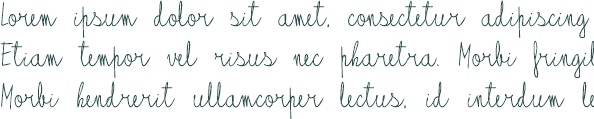 Lorem ipsum dolor sit amet, consectetur adipiscing
Etiam tempor vel risus nec pharetra. Morbi fringil
Morbi hendrerit ullamcorper lectus, id interdum le